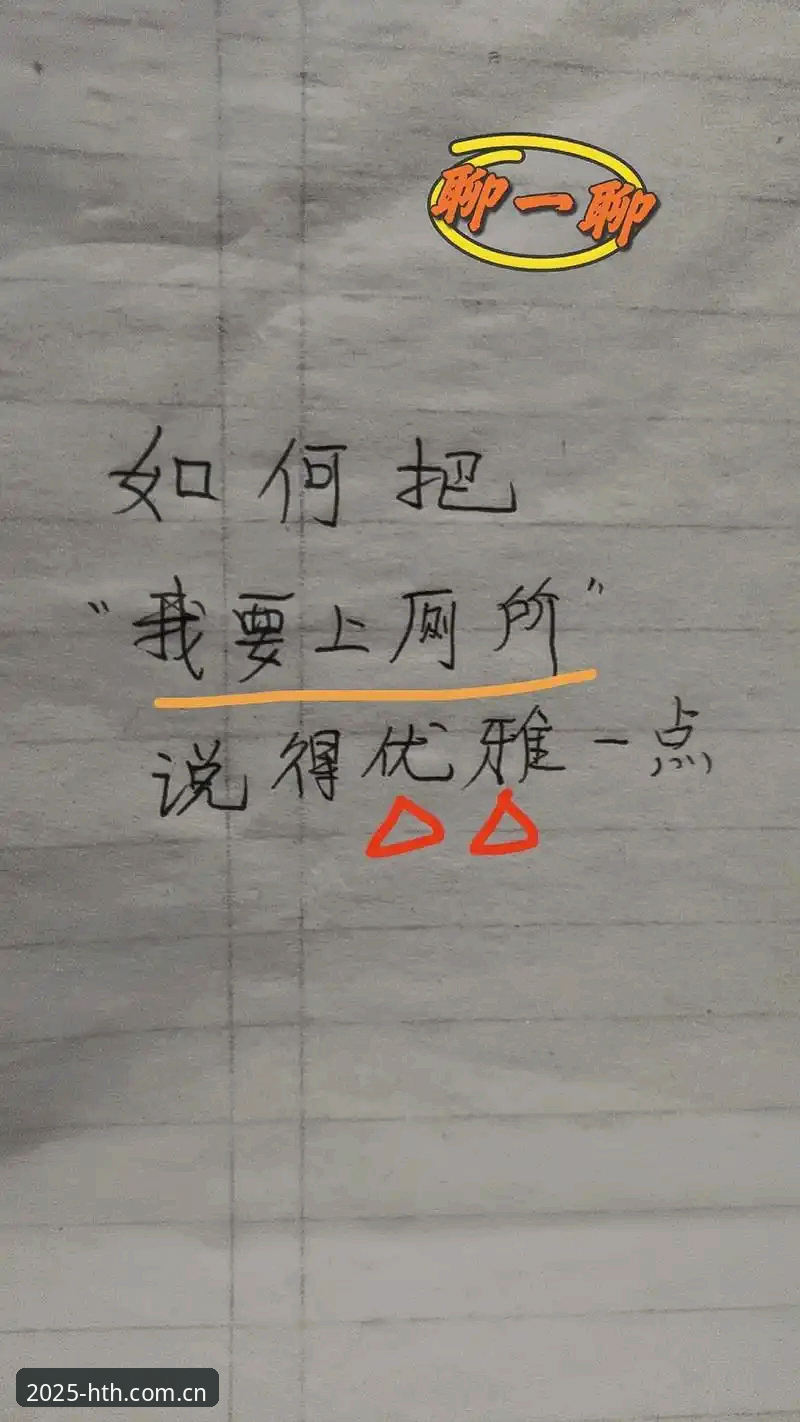 聊一聊
如何把
“我要上厕所”
说得优雅一点
2025-hth.com.cn